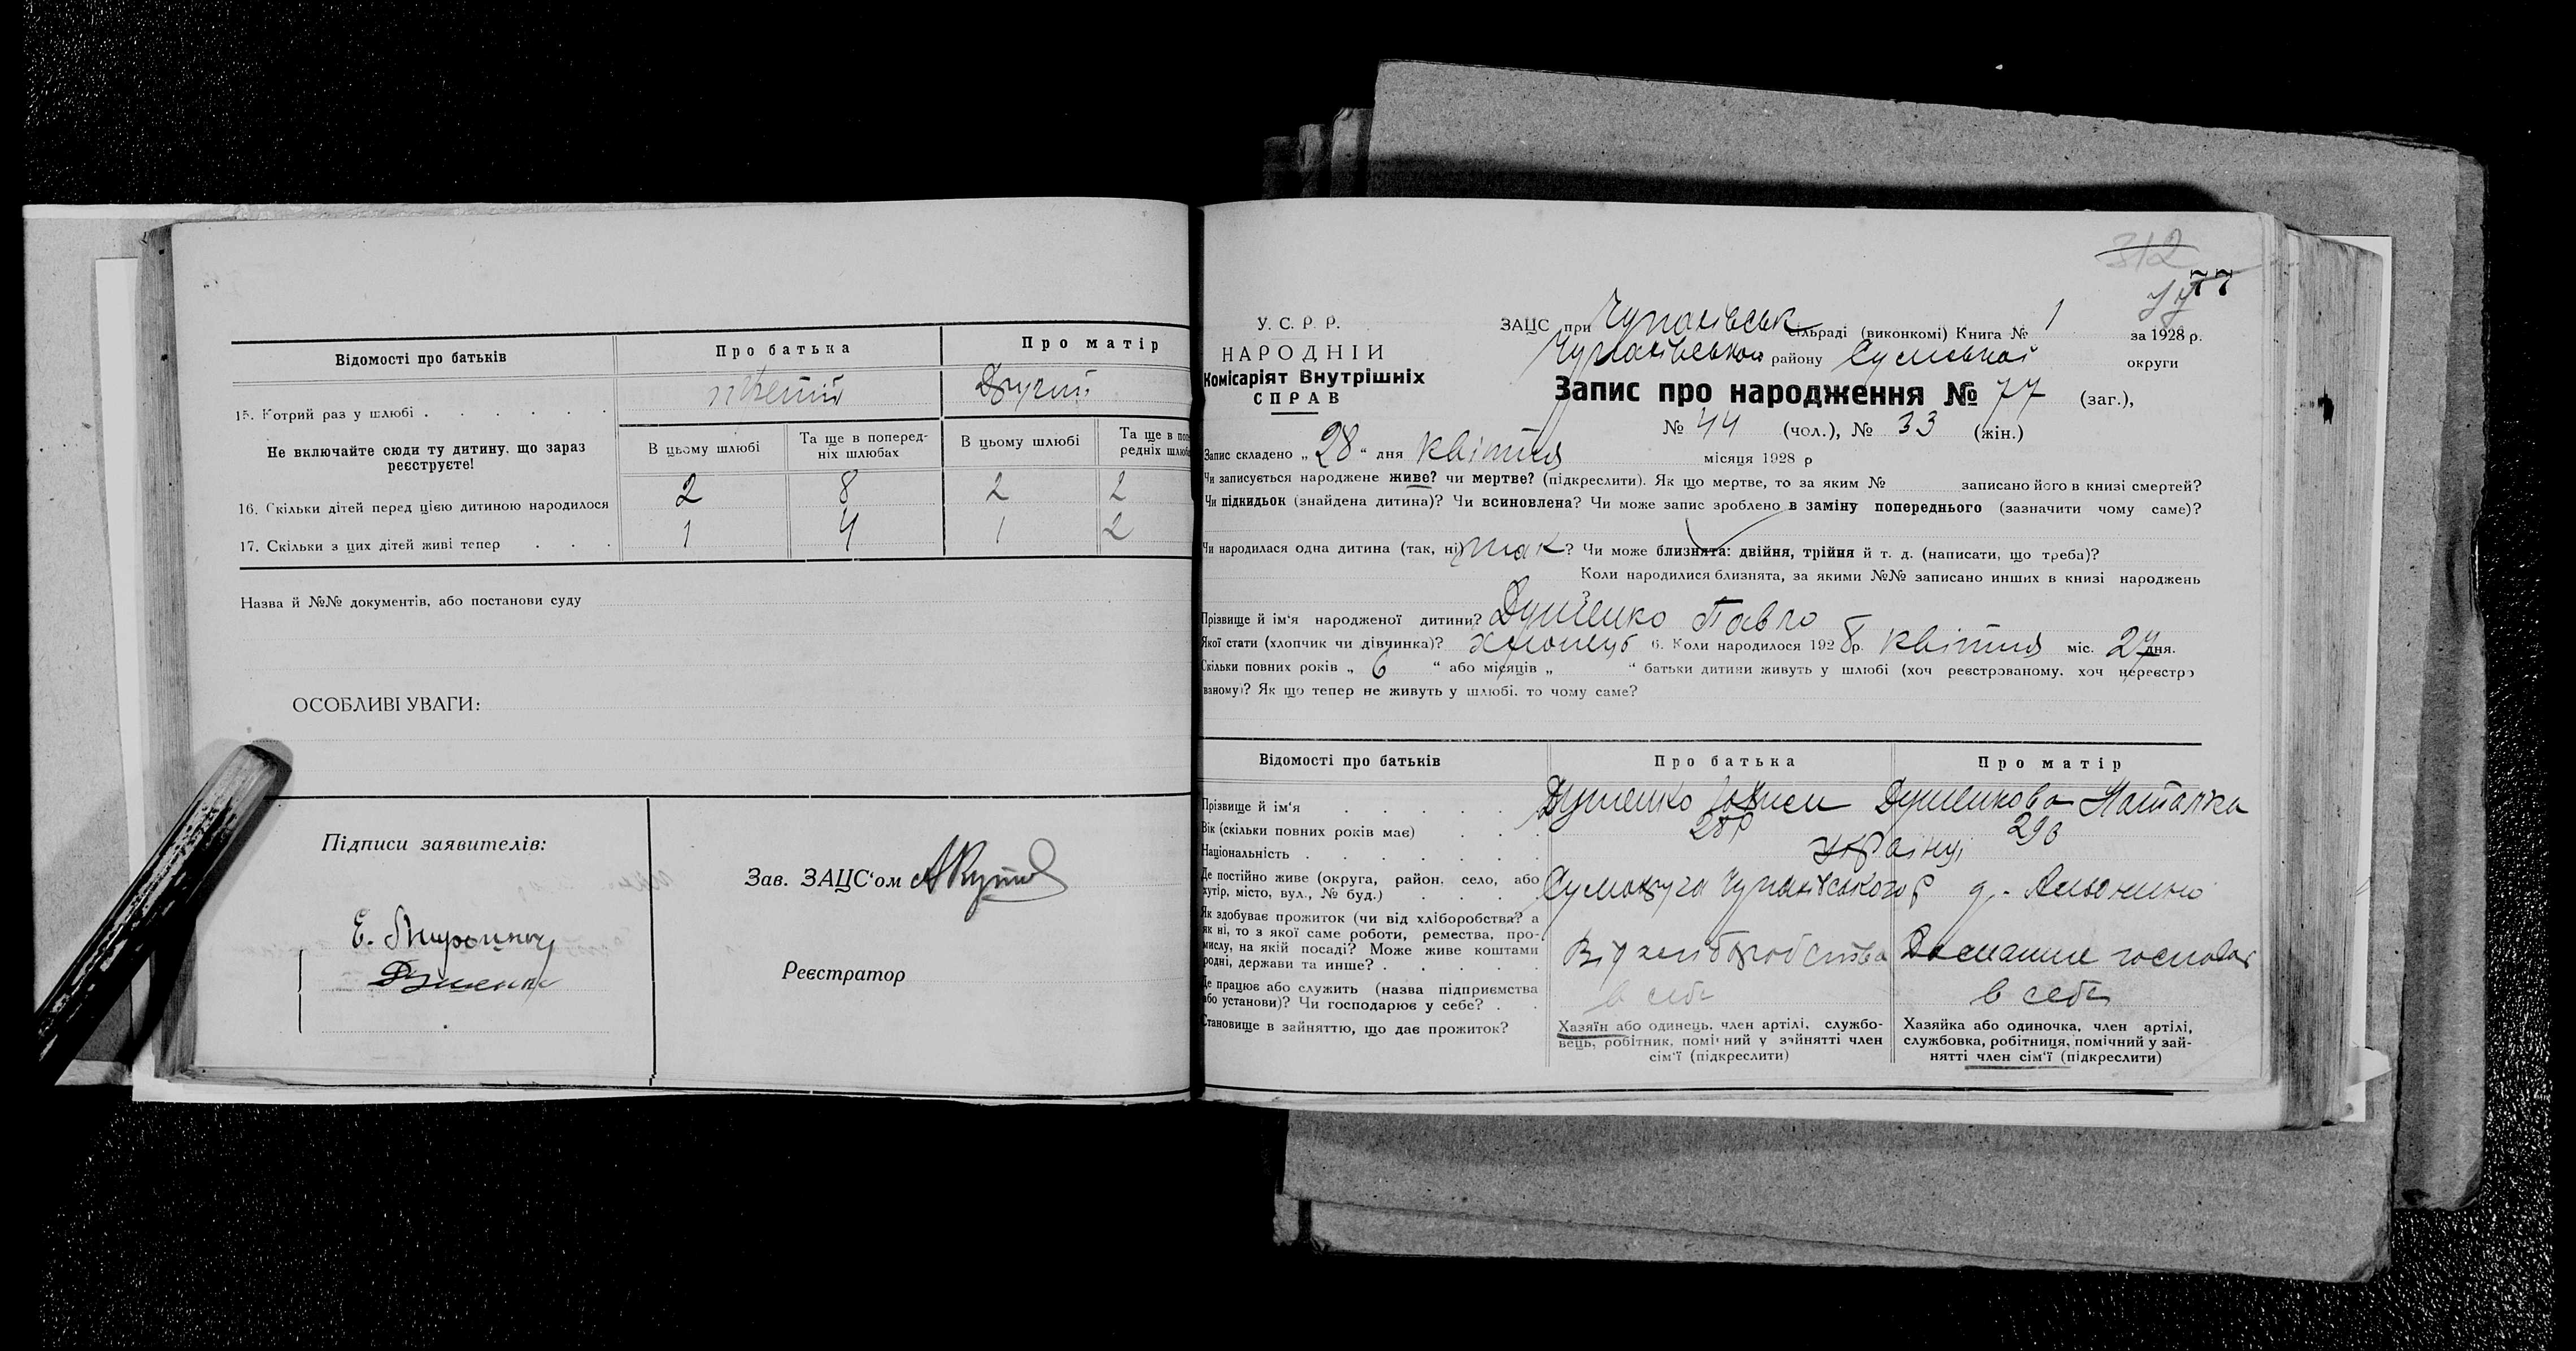 Відомості про батьків
Про батька
Про матір
15. Котрий раз у шлюбі
третій
Другий
Не включайте сюди ту дитину, що зараз реєструєте!
В цьому шлюбі
Та ще в поперед-
ніх шлюбах
В цьому шлюбі
Та ще в попе
редніх шлюба
16. Скільки дітей перед цією дитиною народилося 2 8 2 2
17. Скільки з цих дітей живі тепер 1 4 1 2
Назва й №№ документів, або постанови суду
ОСОБЛИВІ УВАГИ:
Підписи заявителів:
Зав. ЗАЦС‘ом
Реєстратор
312
77
77
У. С. Р. Р.
НАРОДНІЙ
Комісаріят Внутрішніх
СПРАВ
ЗАЦС при Чупахівськ сільраді (виконкомі) Книга № 1 за 1928 р.
Чупахівськом району Сумської округи
Запис про народження № 77 (заг.),
№ 44 (чол.), № 33 (жін.)
Запис складено „ 28 “ дня квітня місяця 1928 р
Чи записується народжене живе? чи мертве? (підкреслити). Як що мертве, то за яким № записано його в книзі смертей?
Чи підкидьок (знайдена дитина)? Чи всиновлена? Чи може запис зроблено в заміну попереднього (зазначити чому саме)?
Чи народилася одна дитина (так, ні) так? Чи може близнята: двійня, трійня й т. д. (написати, що треба)?
Коли народилися близнята, за якими №№ записано инших в книзі народжень
Прізвище й ім‘я народженої дитини? Душенко Павло
Якої стати (хлопчик чи дівчинка)? хлопець 6. Коли народилося 1928р. квітня міс. 27 дня.
Скільки повних років „ 6 “ або місяців „ “ батьки дитини живуть у шлюбі (хоч реєстрованому, хоч нереєстро
ваному)? Як що тепер не живуть у шлюбі, то чому саме?
Відомості про батьків
Про батька
Про матір
Прізвище й ім‘я
Душенко
Душенкова Наталка
Вік (скільки повних років має)
28р
29р
Національність
Українці
Де постійно живе (округа, район, село, або
хутір, місто, вул., № буд.)
Сум округа Чупахівського р
Як здобуває прожиток (чи від хліборобства? а
як ні, то з якої саме роботи, ремества, про-
мислу, на якій посаді? Може живе коштами
родні, держави та инше?
Від хліборобства
Домашнє господар
Де працює або служить (назва підприємства
або установи)? Чи господарює у себе?
в себе
в себе
Становище в зайняттю, що дає прожиток?
Хазяїн або одинець, член артілі, службо-
вець, робітник, помічний у зайнятті член
сім‘ї (підкреслити)
Хазяйка або одиночка, член артілі,
службовка, робітниця, помічний у зай-
нятті член сім‘ї (підкреслити)